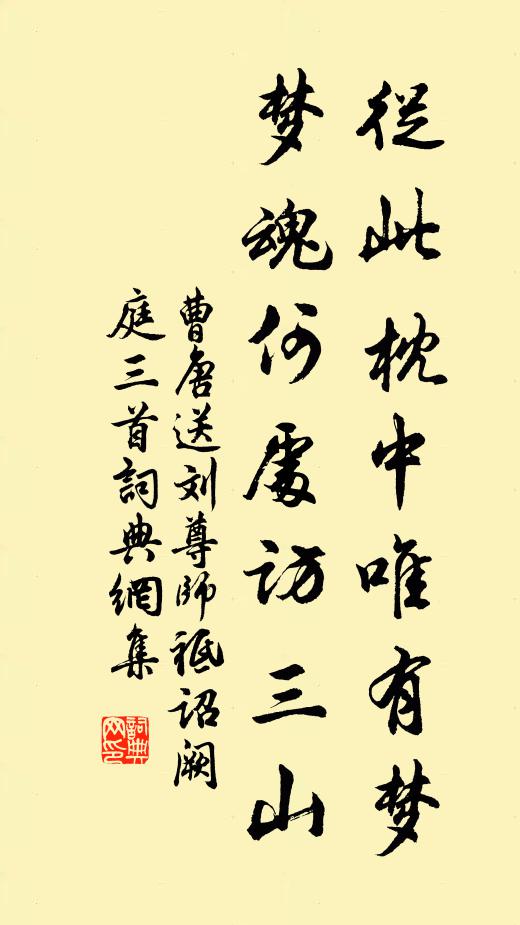 從此枕中唯有梦
梦魂何處访三山
曹唐送刘尊師祗诏阙
庭三首詞典網集
詞典網印